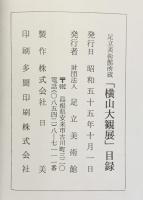 足立美術館所蔵
「横山大観展」目録
発行日 昭和五十五年十月一日
発行者 財団法人 足立美術館
〒692 島根県安来市古川町三二〇
電話〇八五四二(八)七一一一番
製作 株式会社 日美
印刷 多聞印刷株式会社